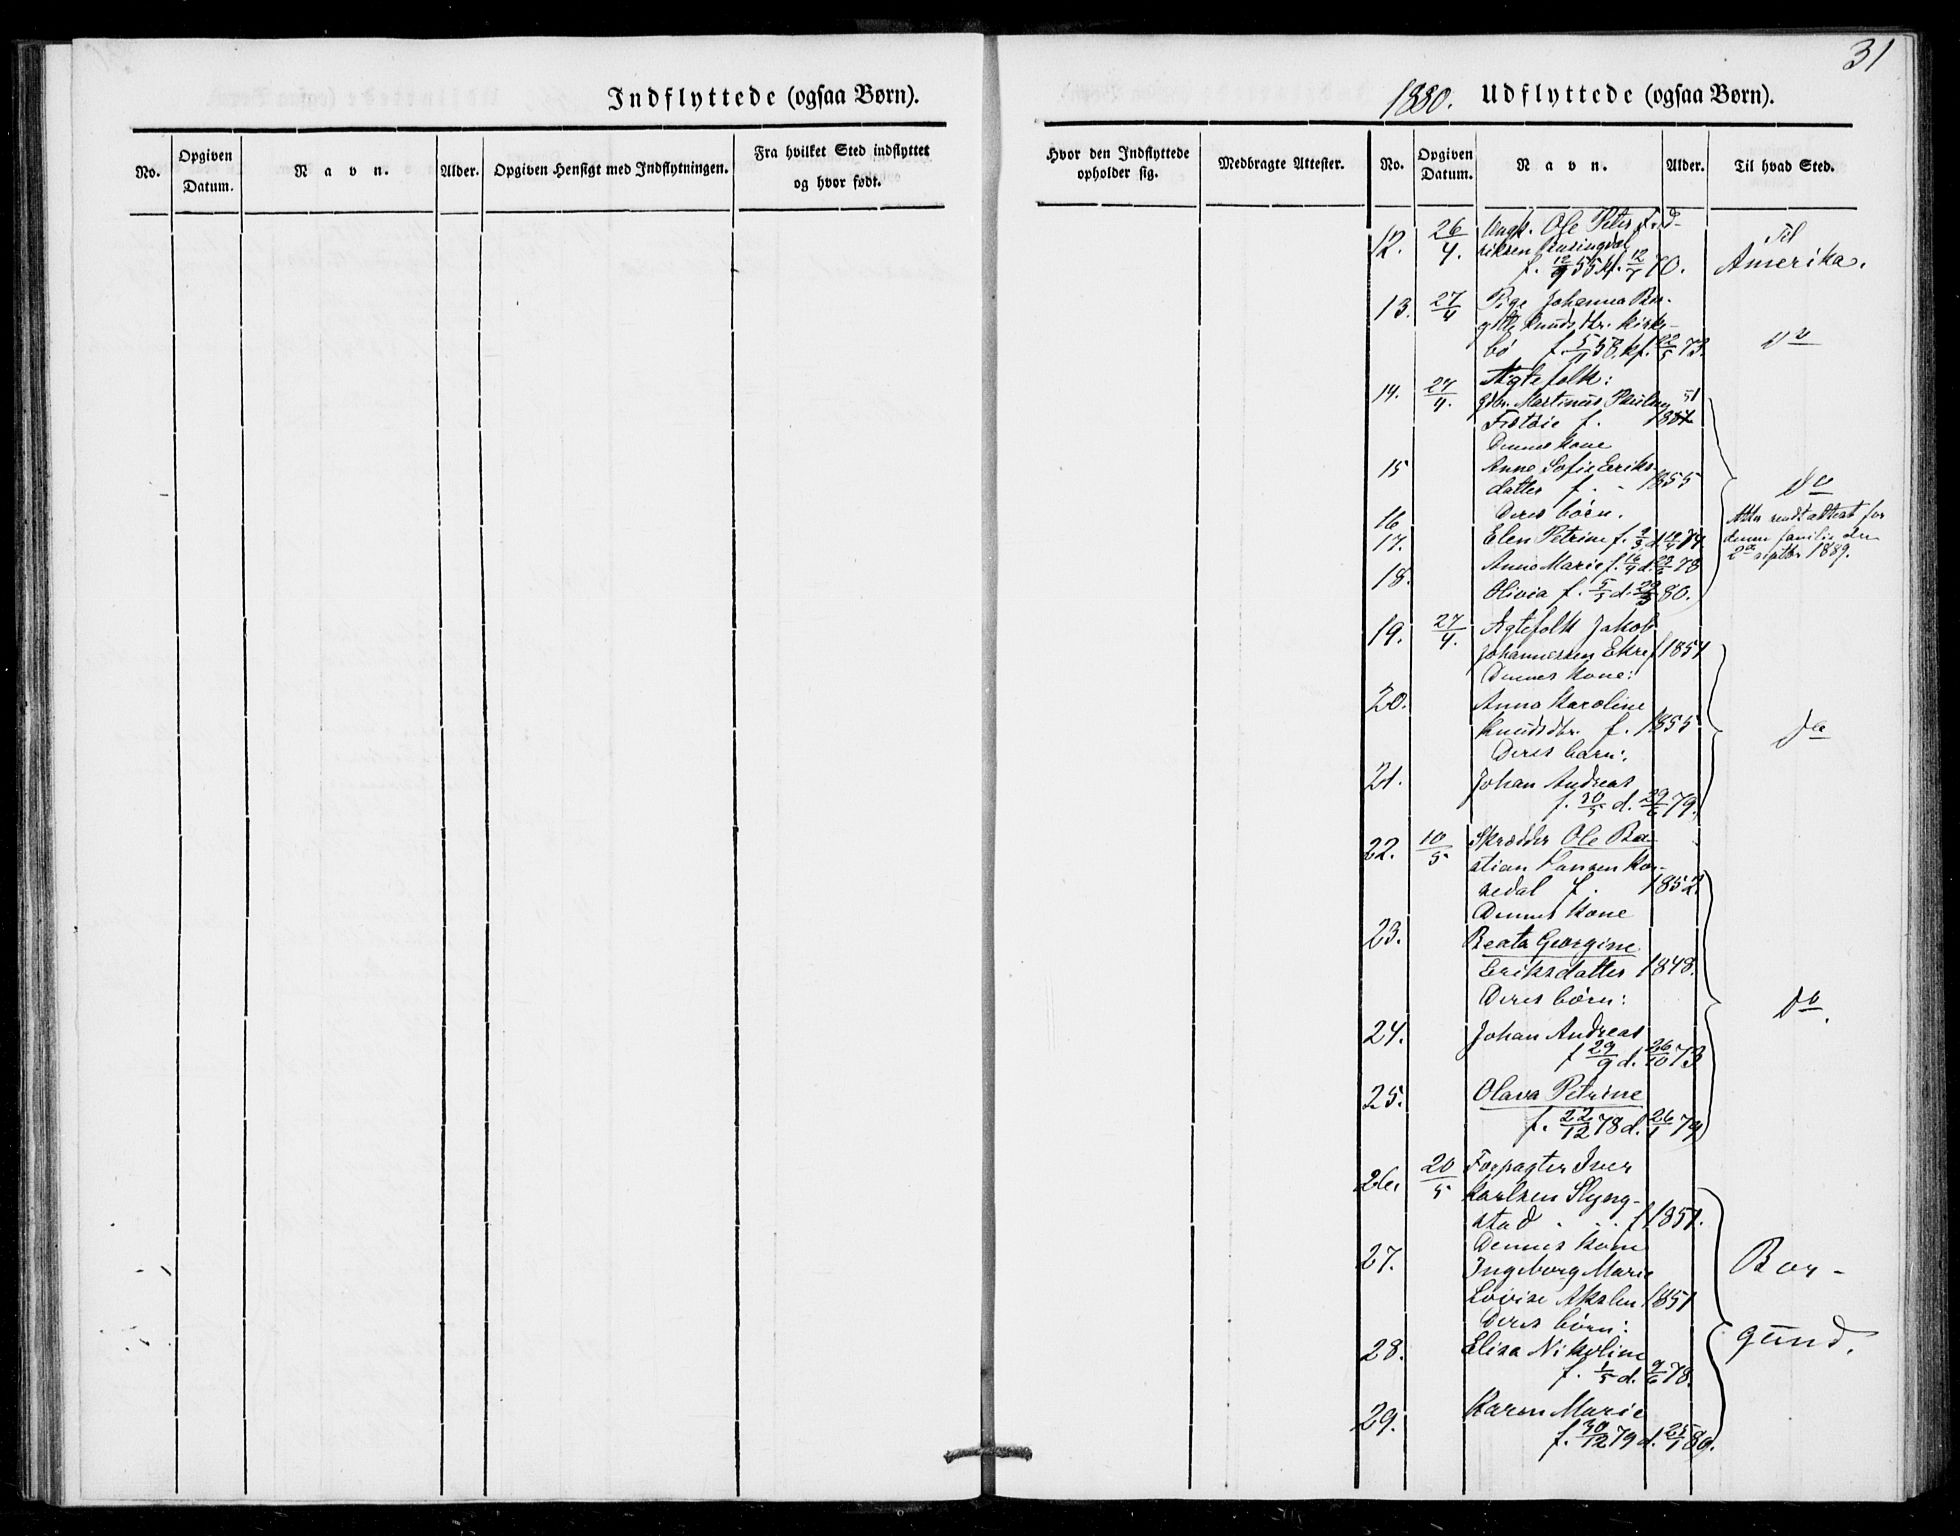 31
Indflyttede (ogsaa Børn).
No.
Opgiven
Datum.
Navn.
Alder.
Opgiven Hensigt med Indflytningen.
Fra hvilket Sted indflyttet
og hvor født.
1880. Udflyttede (ogsaa Børn).
Hvor den Indflyttede
opholder sig.
Medbragte Attester.
No.
Opgiven
Datum.
Navn.
Alder.
Til hvad Sted.
12. 26/4. Ungk. Ole Peter Fred- Til
riksen
f. 12/9 55 kf. 12/7 70. Amerika.
13. 27/4 Pige Johanna Ber-
gitte Knudsdtr. Kirke-
bø f. 5/1 58. kf. 22/5 73. Do
14. 27/4. Ægtefolk:
Gbr. Martinus Paulsen 51
f. 1881
Dennes Kone
15 Anne Sofie Eriks-
datter f. - 1855 Do
16 Deres børn.
17. Elen Petrine f. 2/3 d. 74. Atter sendt attest for
denne familie den
2den septbr 1889.
Anne Marie f. 16/4 d. 78
18. Olivia f. 5/5 d. 80.
19. 27/4. Ægtefolk Jakob
Johannessen Ekre f 1851
Dennes Kone:
20. Anna Karoline
Knudsdtr. f. 1855. Do
Deres barn:
21. Johan Andreas
f. 30/5 d. 29/6 79.
22. 10/5 Skrædder Ole Ba-
stian Hansen Ko-
sedal f. 1852.
Dennes Kone
23. Beata Georgine
Eriksdatter 1848.
Deres børn: Do.
24. Johan Andreas
f 29/9 d. 26/10 73
25. Olava Petrine
f. 22/12 78 d. 26/1 79
26. 20/5 Forpagter Iver
Karlsen Slyng-
stad . . . f 1851.
Dennes Kone
27. Ingeborg Marie Bor-
Lovise Akslen 1851
Deres børn:
28. Elisa Nikoline gund.
f. 1/5 d. 9/6 78.
29. Karen Marie
f. 30/12 79 d. 25/1 80.